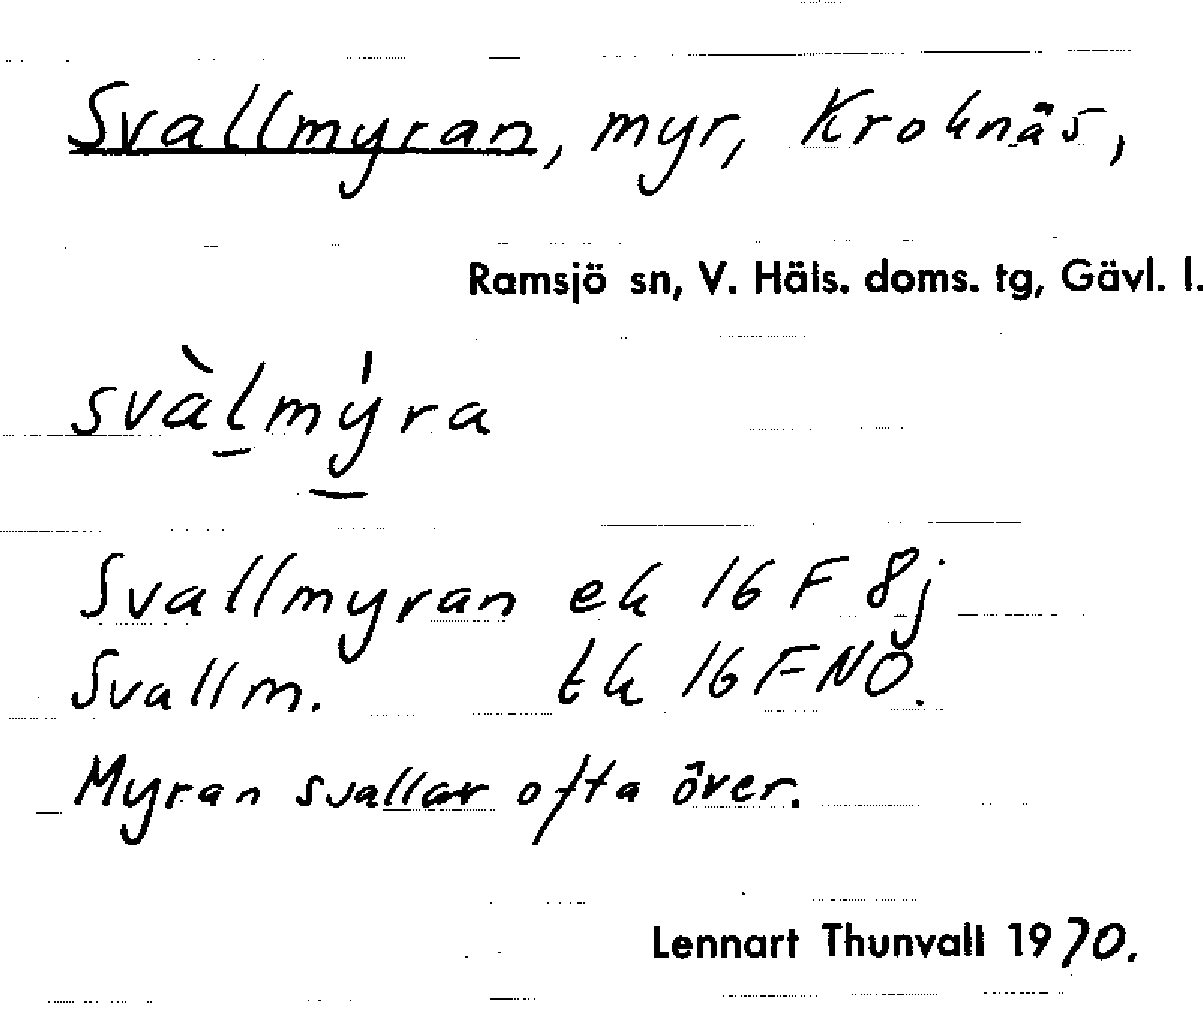 Svallmyran, myr, Kroknäs,
Ramsjö sn, V. Häls. doms. tg, Gävl. l.
svàl̲mý̲ra
Svallmyran ek 16 F 8j
Svallm. tk 16 F NO.
Myran svallar ofta över.
Lennart Thunvall 1970.